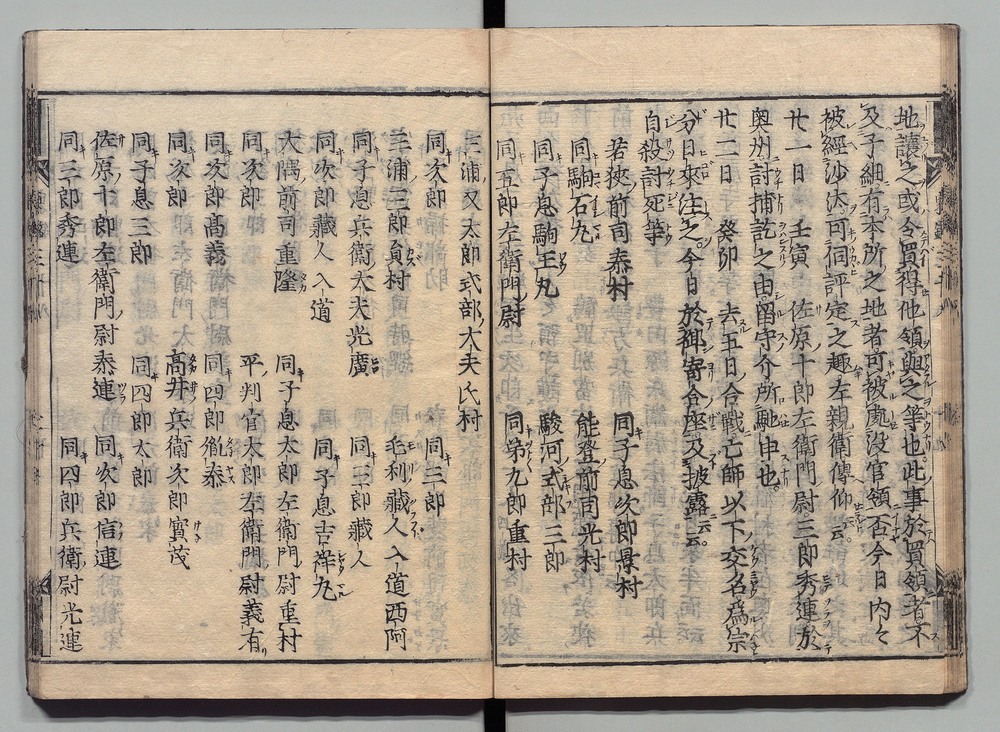 地讓之或令買得他領與之等也此事於買領者不
及子細有本所之地者可被處没官領否今日内々
被經沙汰可伺評定之趣左親衛傳仰云云
廿一日 壬寅 佐原十郎左衛門尉三郎秀連於
奥州討捕訖之由留守介所馳申也
廿二日 癸卯 去五日合戰亡師以下交名爲宗
分日來注之今日於御寄合座及披露云云
自殺討死等
若狹前司泰村 同子息次郎景村
同駒石丸 能登前司光村
同子息駒王丸 駿河式部三郎
同五郎左衛門尉 同弟九郎重村
三浦又太郎式部大夫氏村
同次郎 同三郎
三浦三郎員村 毛利藏人入道西阿
同子息兵衛大夫光廣 同三郎藏人
同次郎藏人入道 同子息吉祥丸
大隅前司重隆 同子息太郎左衛門尉重村
同次郎 平判官太郎左衛門尉義有
同次郎高義 同四郎胤泰
同次郎 高井兵衛次郎實茂
同子息三郎 同四郎太郎
佐原十郎左衛門尉泰連 同次郎信連
同三郎秀連 同四郎兵衛尉光連